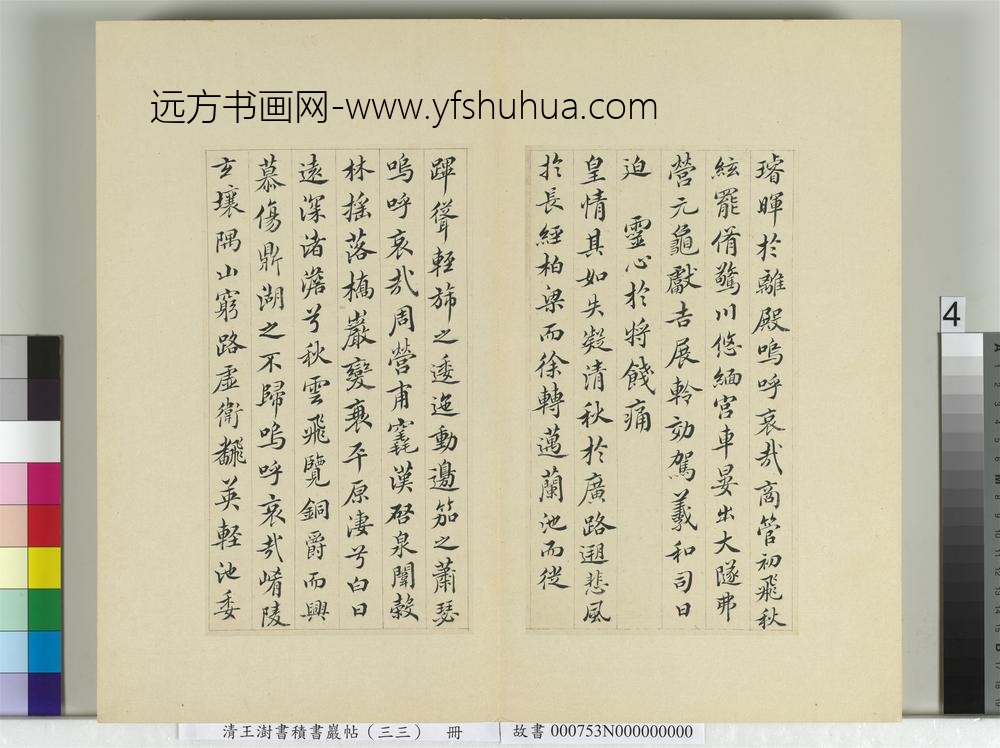 远方书画网-www.yfshuhua.com
璿暉於離殿嗚呼哀哉商管初飛秋
絃罷脩驚川悠緬宮車晏出大隧弗
營元龜獻吉展軨効駕羲和司日
迫 靈心於將餞痛
皇情其如失凝清秋於廣路遡悲風
於長經柏梁而徐轉邁蘭池而從
蹕聳輕旆之逶迤動邊笳之蕭瑟
嗚呼哀哉周營甫窆漢啓泉闈穀
林搖落橋巖變衰平原淒兮白日
遠深渚澹兮秋雲飛覽銅爵而興
慕傷鼎湖之不歸嗚呼哀哉崤陵
玄壤隅山窮路虛衛翻英輕池委
4
清王澍書積書巖帖（三三） 冊
故書 000753N000000000